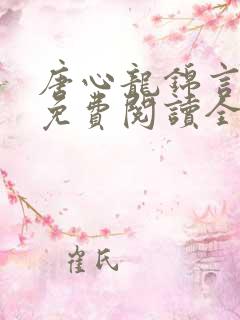 唐心龍錦言
免費閱讀全
崔氏